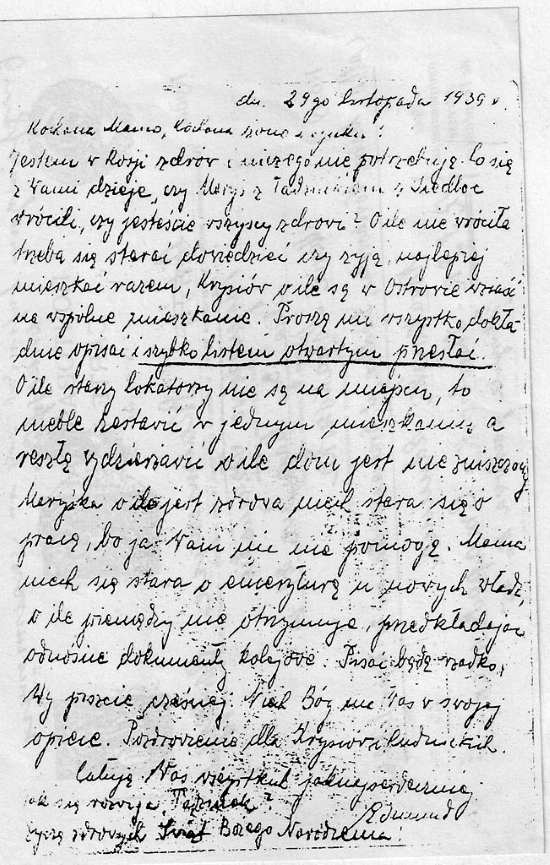 dn. 29go listopada 1939 r.
Kochana Mamo, Kochana żono i synku!
Jestem w Rosji zdrów i niczego nie potrzebuję. Co się
z Wami dzieje, czy Marys z Tadziukiem z Siedlec
wrócili, czy jesteście wszyscy zdrowi? O ile nie wróciła
trzeba się starać dowiedzieć czy żyją, najlepiej
mieszkać razem, Krysiów o ile są w Ostrowie wziąść
na wspólne mieszkanie. Proszę mi wszystko dokła-
dnie opisać i szybko listem otwartym przesłać.
O ile starzy lokatorzy nie są na miejscu, to
meble zestawić w jednym mieszkaniu a
resztę wydzierżawić o ile dom jest nie zniszczony
Maryśka o ile jest zdrowa niech stara się o
pracę, bo ja Wam nic nie pomogę. Mama
niech się stara o emeryturę u nowych władz,
o ile pieniędzy nie otrzymuje, przedkładając
odnośne dokumenty kolejowe. Pisać będę rzadko,
Wy piszcie częściej. Niech Bóg ma Was w swojej
opiece. Pozdrowienie dla Krysiów i Rudnickich.
Całuję Was wszystkich jaknajserdeczniej
Jak się rozwija Tadziuk?
Edmund
życzę zdrowych Świąt Bożego Narodzenia!